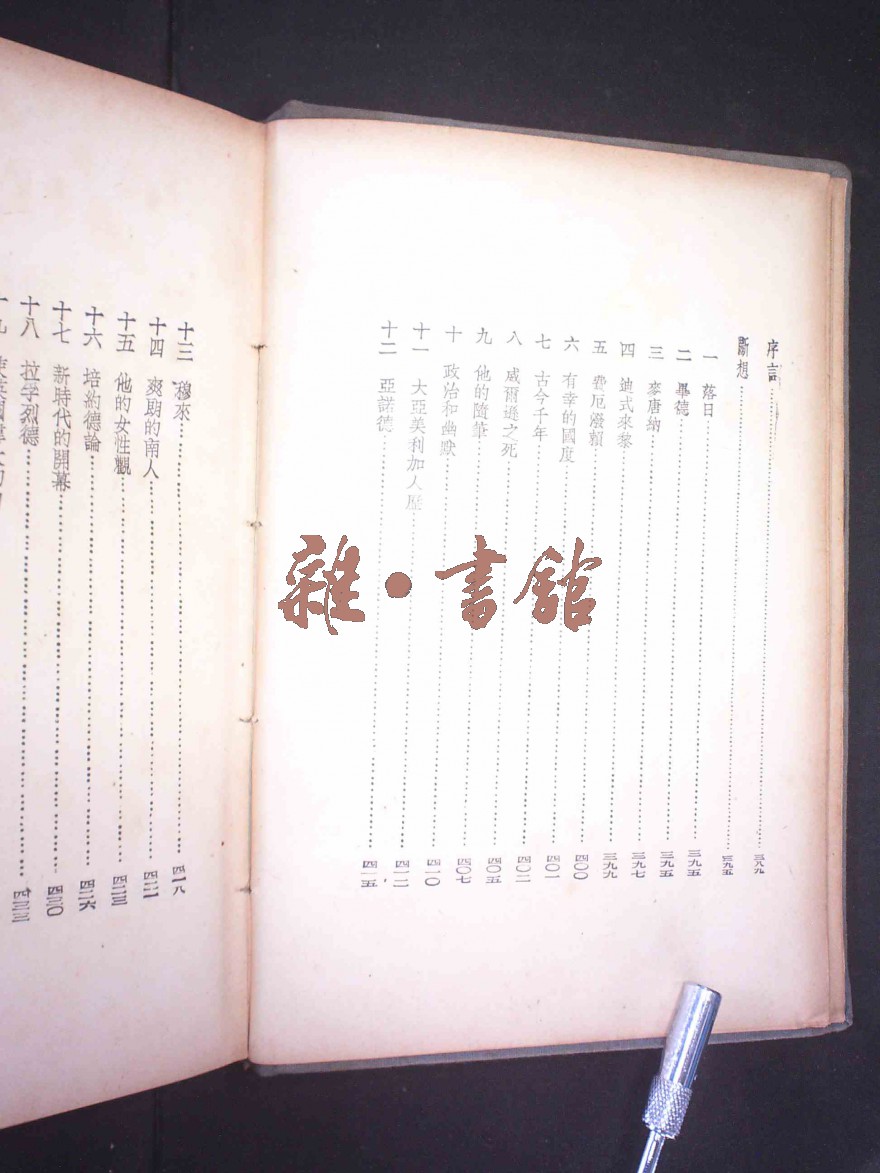 序言 三八九
斷想 三九五
一 落日 三九五
二 畢德 三九五
三 麥唐納 三九七
四 迪式來黎 三九九
五 費厄潑賴 四〇〇
六 有幸的國度 四〇一
七 古今千年 四〇二
八 威爾遜之死 四〇五
九 他的隨筆 四〇七
十 政治和幽默 四一〇
十一 大亞美利加人歷 四一二
十二 亞諾德 四一五
十三 穆來 四一八
十四 爽朗的南人 四二二
十五 他的女性觀 四二三
十六 培約德論 四二六
十七 新時代的開幕 四三〇
十八 拉孚烈德 四三三
十九
雜·書館